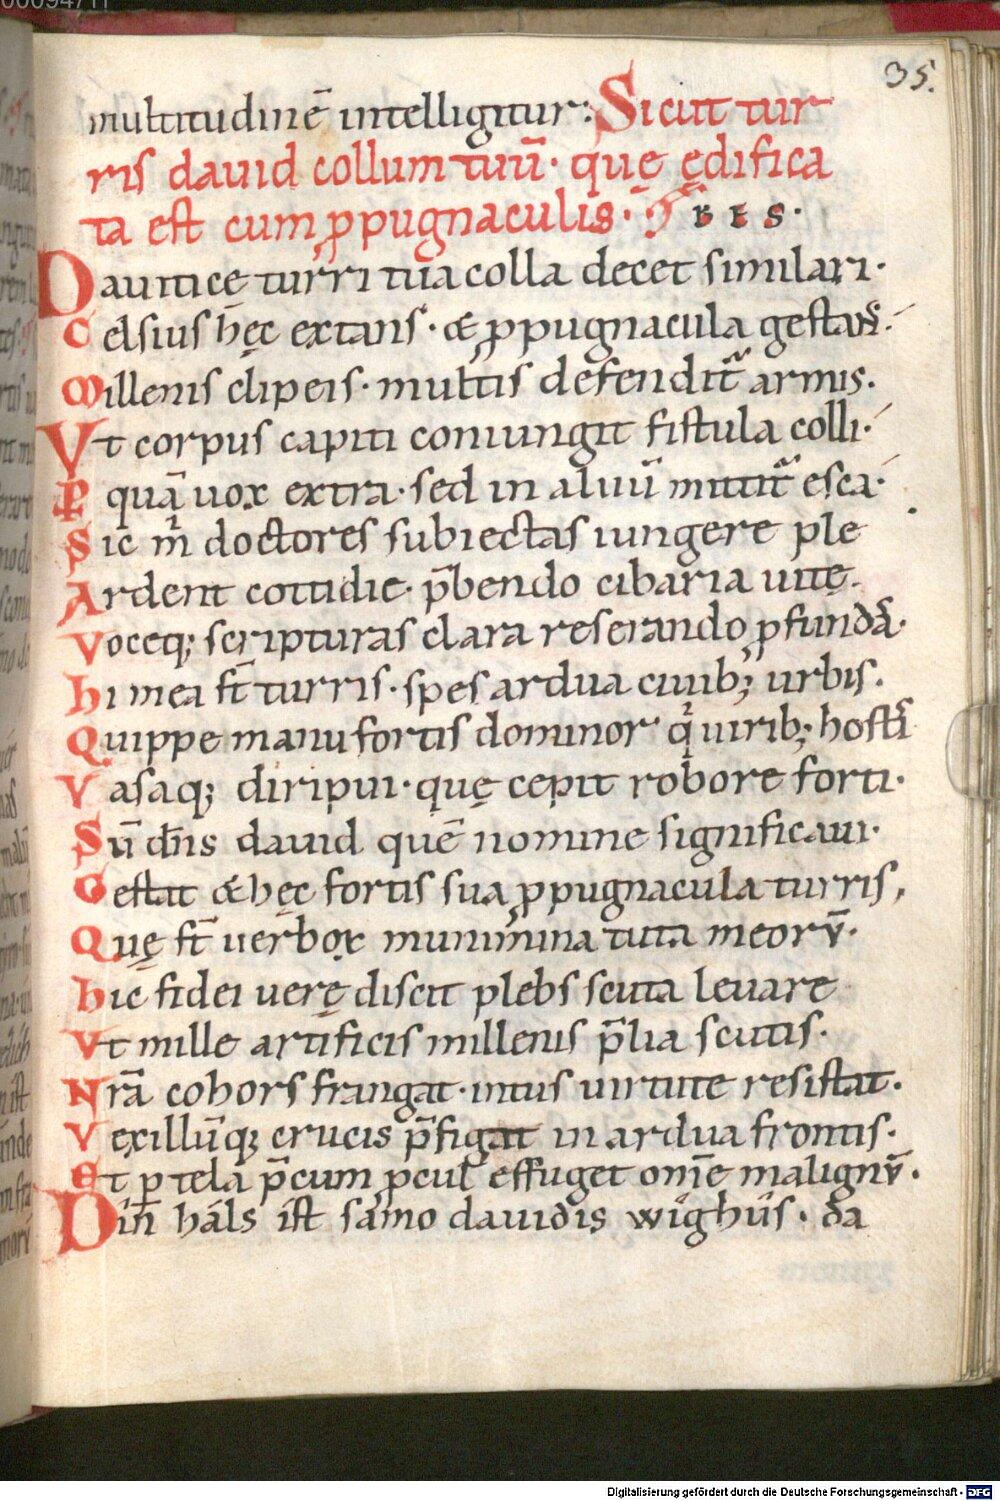 35.
multitudinē intelligitur: Sicut tur
ris dauid collum tuū· que ędifica
ta est cum ꝓpugnaculis·
Dauiticę turri tua colla decet similari·
Celsius hęc extans· & ꝓpugnacula gestans·
Millenis clipeis· multis defendit armis·
Vt corpus capiti coniungit fistula colli·
sed in aluū mittit esca·
Sic m̄ doctores subiectas iungere ple
Ardent cottidie· p̄bendo cibaria uitę·
Voceq; scripturas clara reserando ꝓfundā·
Hi mea st̄ turris· spes ardua ciuib; urbis·
Quippe manu fortis dominor q̇ uirib; hosti
Vasaq; diripui· quę cepit robore forti·
Sū dn̄s dauid quē nomine significaui·
Gestat & hęc fortis sua ꝓpugnacula turris,
Quę st̄ uerboꝝ munimina tuta meorv̄·
Hic fidei uerę discit plebs scuta leuare
Vt mille artificis millenis p̄lia scutis·
Nr̄a cohors frangat· intus uirtute resistat·
Vexillūq; crucis p̄figat in ardua frontis·
Et ꝑ telā p̄cum ꝓcul effuget om̄e malignv̄·
Din háls ist sámo dauidis wighûs· ða
Digitalisierung gefördert durch die Deutsche Forschungsgemeinschaft · DFG